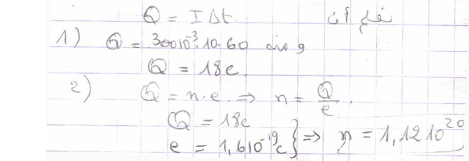 نعلم أن Q = IΔt
1) Q = 300 10⁻³. 10. 60 ومنه
Q = 18c
2) Q = n. e. ⇒ n = Q/e.
Q = 18c
e = 1,6 10⁻¹⁹c } ⇒ n = 1,12 10²⁰